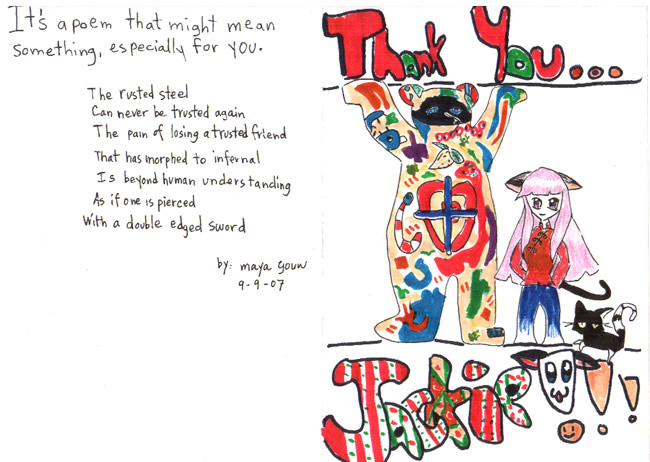 It's a poem that might mean
something, especially for YOU.
The rusted steel
Can never be trusted again
The pain of losing a trusted friend
That has morphed to infernal
Is beyond human understanding
As if one is pierced
With a double edged sword
by: maya gouw
9-9-07
Thank You...
Jackie!!!